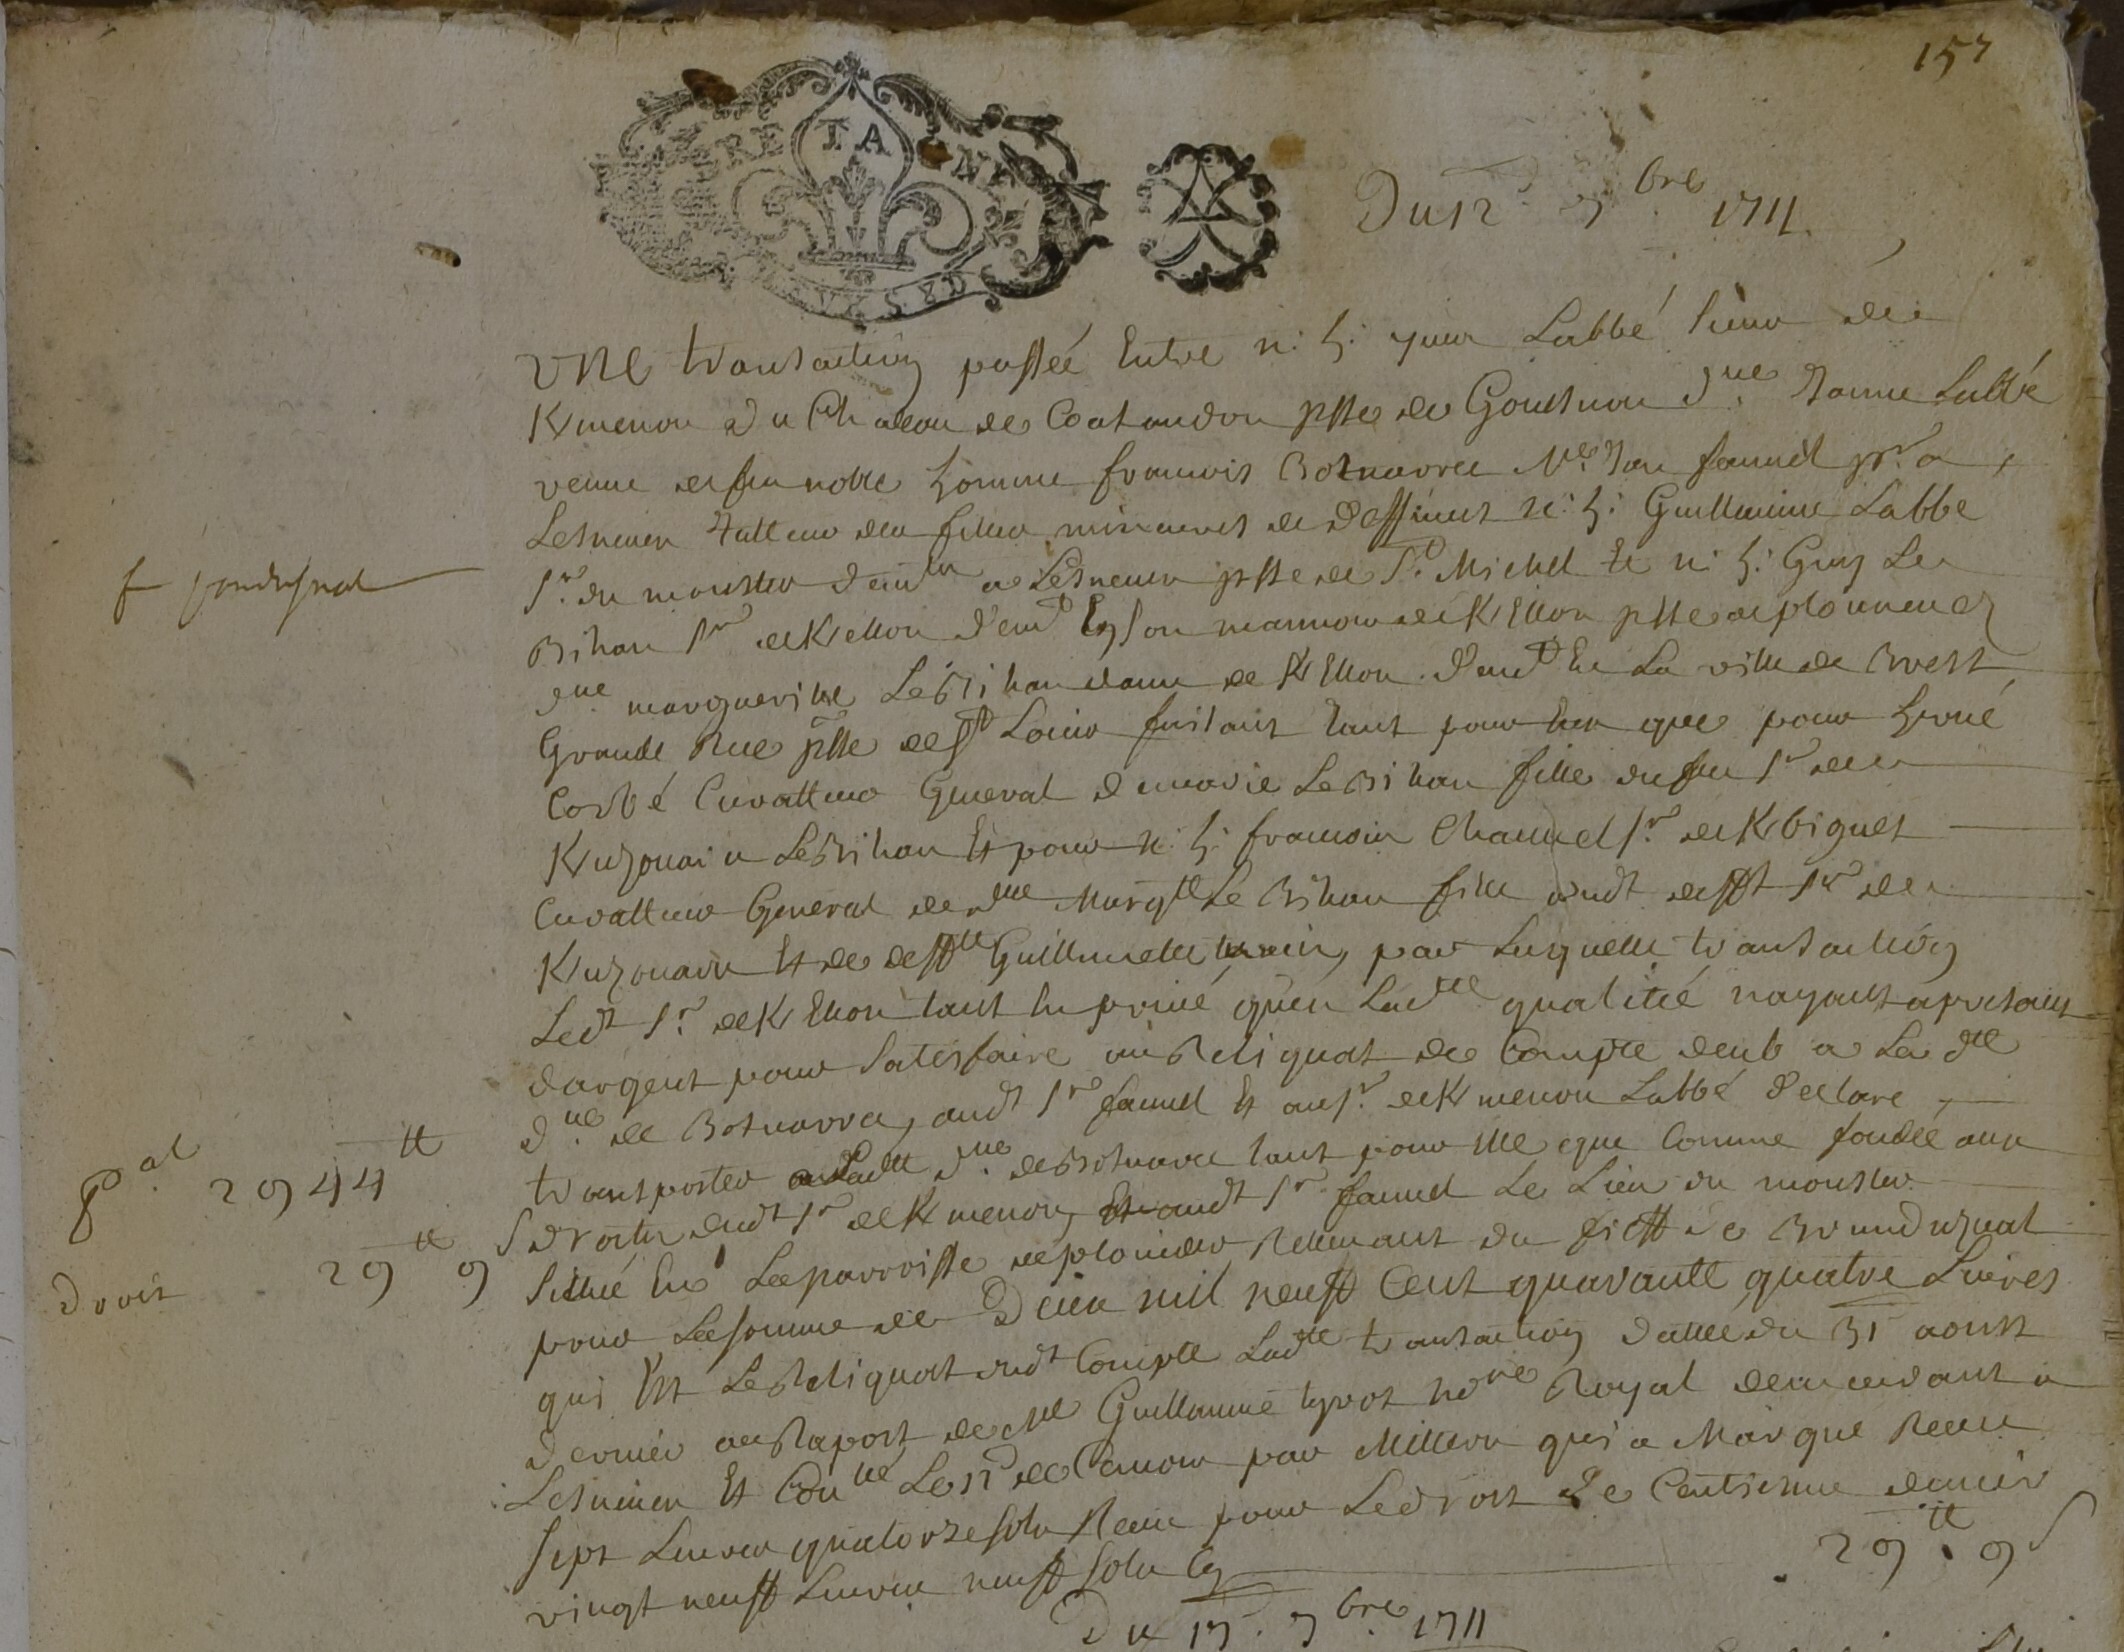 157
BRETAGNE
Du 12 7bre 1711
VNE transaction passée Entre n: h: yuen Labbé sieur de
Kmenou du Chateau de Coatandon psse de Gouesnou dlle Janne Labbé
veuve de feu noble homme francois Botnarrel Me Jan Jamel pr a
Lesneuen tutteur des filles mineures de deffunct n: h: Guillaume Labbe
f
sr du mouster demt a Lesneuen psse de St Michel Et n: h: Guy Le
Bihan sr de KEllon demt En son mannoir de KEllon psse de plouneuez
dlle margueritte Le Bihan dame de KEllon demt En La ville de Brest
Grande Rue psse de St Louis faisant tant pour Eux que pour hervé
Corbé Curatteur General de marie Le Bihan fille du feu sr de
Le Bihan Et pour n: h: francois Chamel sr de Kbiguet
Curatteur General de dlle Margtte Le Bihan fille dudt defft sr de
Et de deffte Guillemette par Laquelle transaction
Ledt sr de KEllon tant En privé qu'en Ladtte qualitté nayant a presant
dargent pour Satisfaire au Reliquat de Compte deub a La dtte
dlle de Botnarrel, audt sr Jamel Et au sr de Kmenou Labbé declare
pal 2944 tt
transporter a Ladtte dlle de Botnarrel tant pour Elle que Comme fondée aux
droits dudt sr de Kmenou, Et audt sr Jamel Le Lieu du mouster
droit 29 tt 9 s
Situé En La parroisse de plouider Relevant du fieff de
pour La somme de Deux mil neuff Cent quarante quatre Livres
qui Est Le Reliquat dudt Compte Ladtte transaction dattée du 31 aoust
dernier au Raport de Me Guillaume no.re Royal demeurant a
Lesneuen Et Con.lle Le 11 de Ce mois par Millern qui a Marqué Receu
sept Livres quatorze sols Receu pour Le droit de Centiesme denier
vingt neuff Livres neuff sols Cy 29 tt 9 s
Du 17 7bre 1711